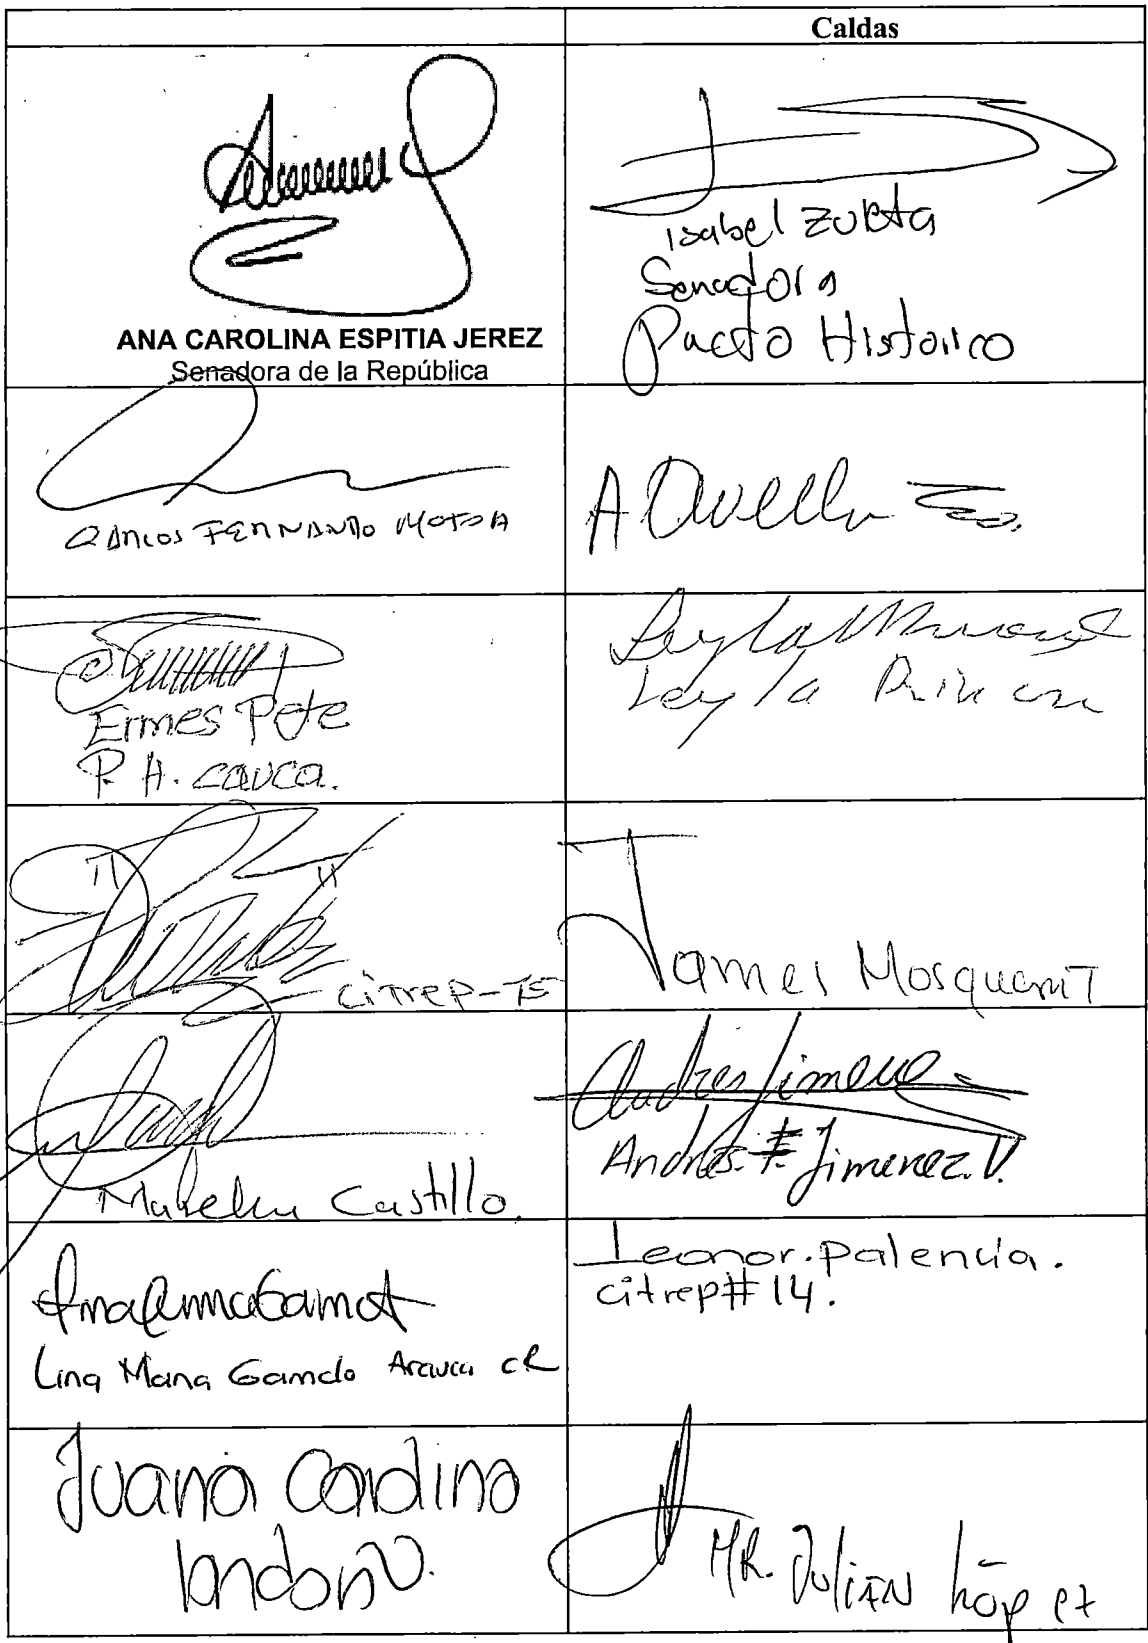 Caldas
ANA CAROLINA ESPITIA JEREZ
Senadora de la República
Isabel Zuleta
Senadora
Pacto Histórico
CARLOS FERNANDO MOTOA
A Avella
Ermes Pete
P. H. cauca.
Leyla Rincon
citrep-15
James Mosquera T
Mahelu Castillo.
Andres Jimenez
Andrés. F. Jimenez. V.
Lina Maria Garrido Arauca CR
Leonor. Palencia.
citrep# 14.
Juana Carolina
Londoño
HR. Julián López